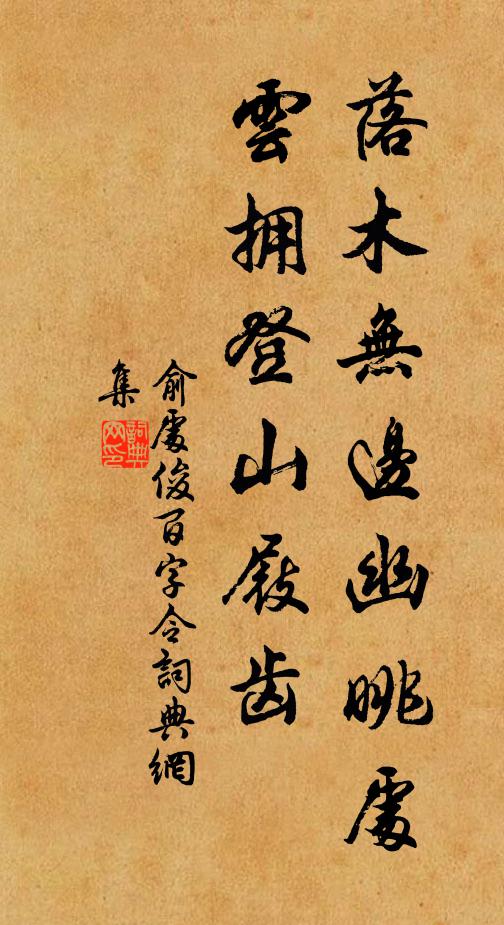 落木無邊幽眺處
雲擁登山屐齒
俞處俊百字令詞典網
集
詞典網印